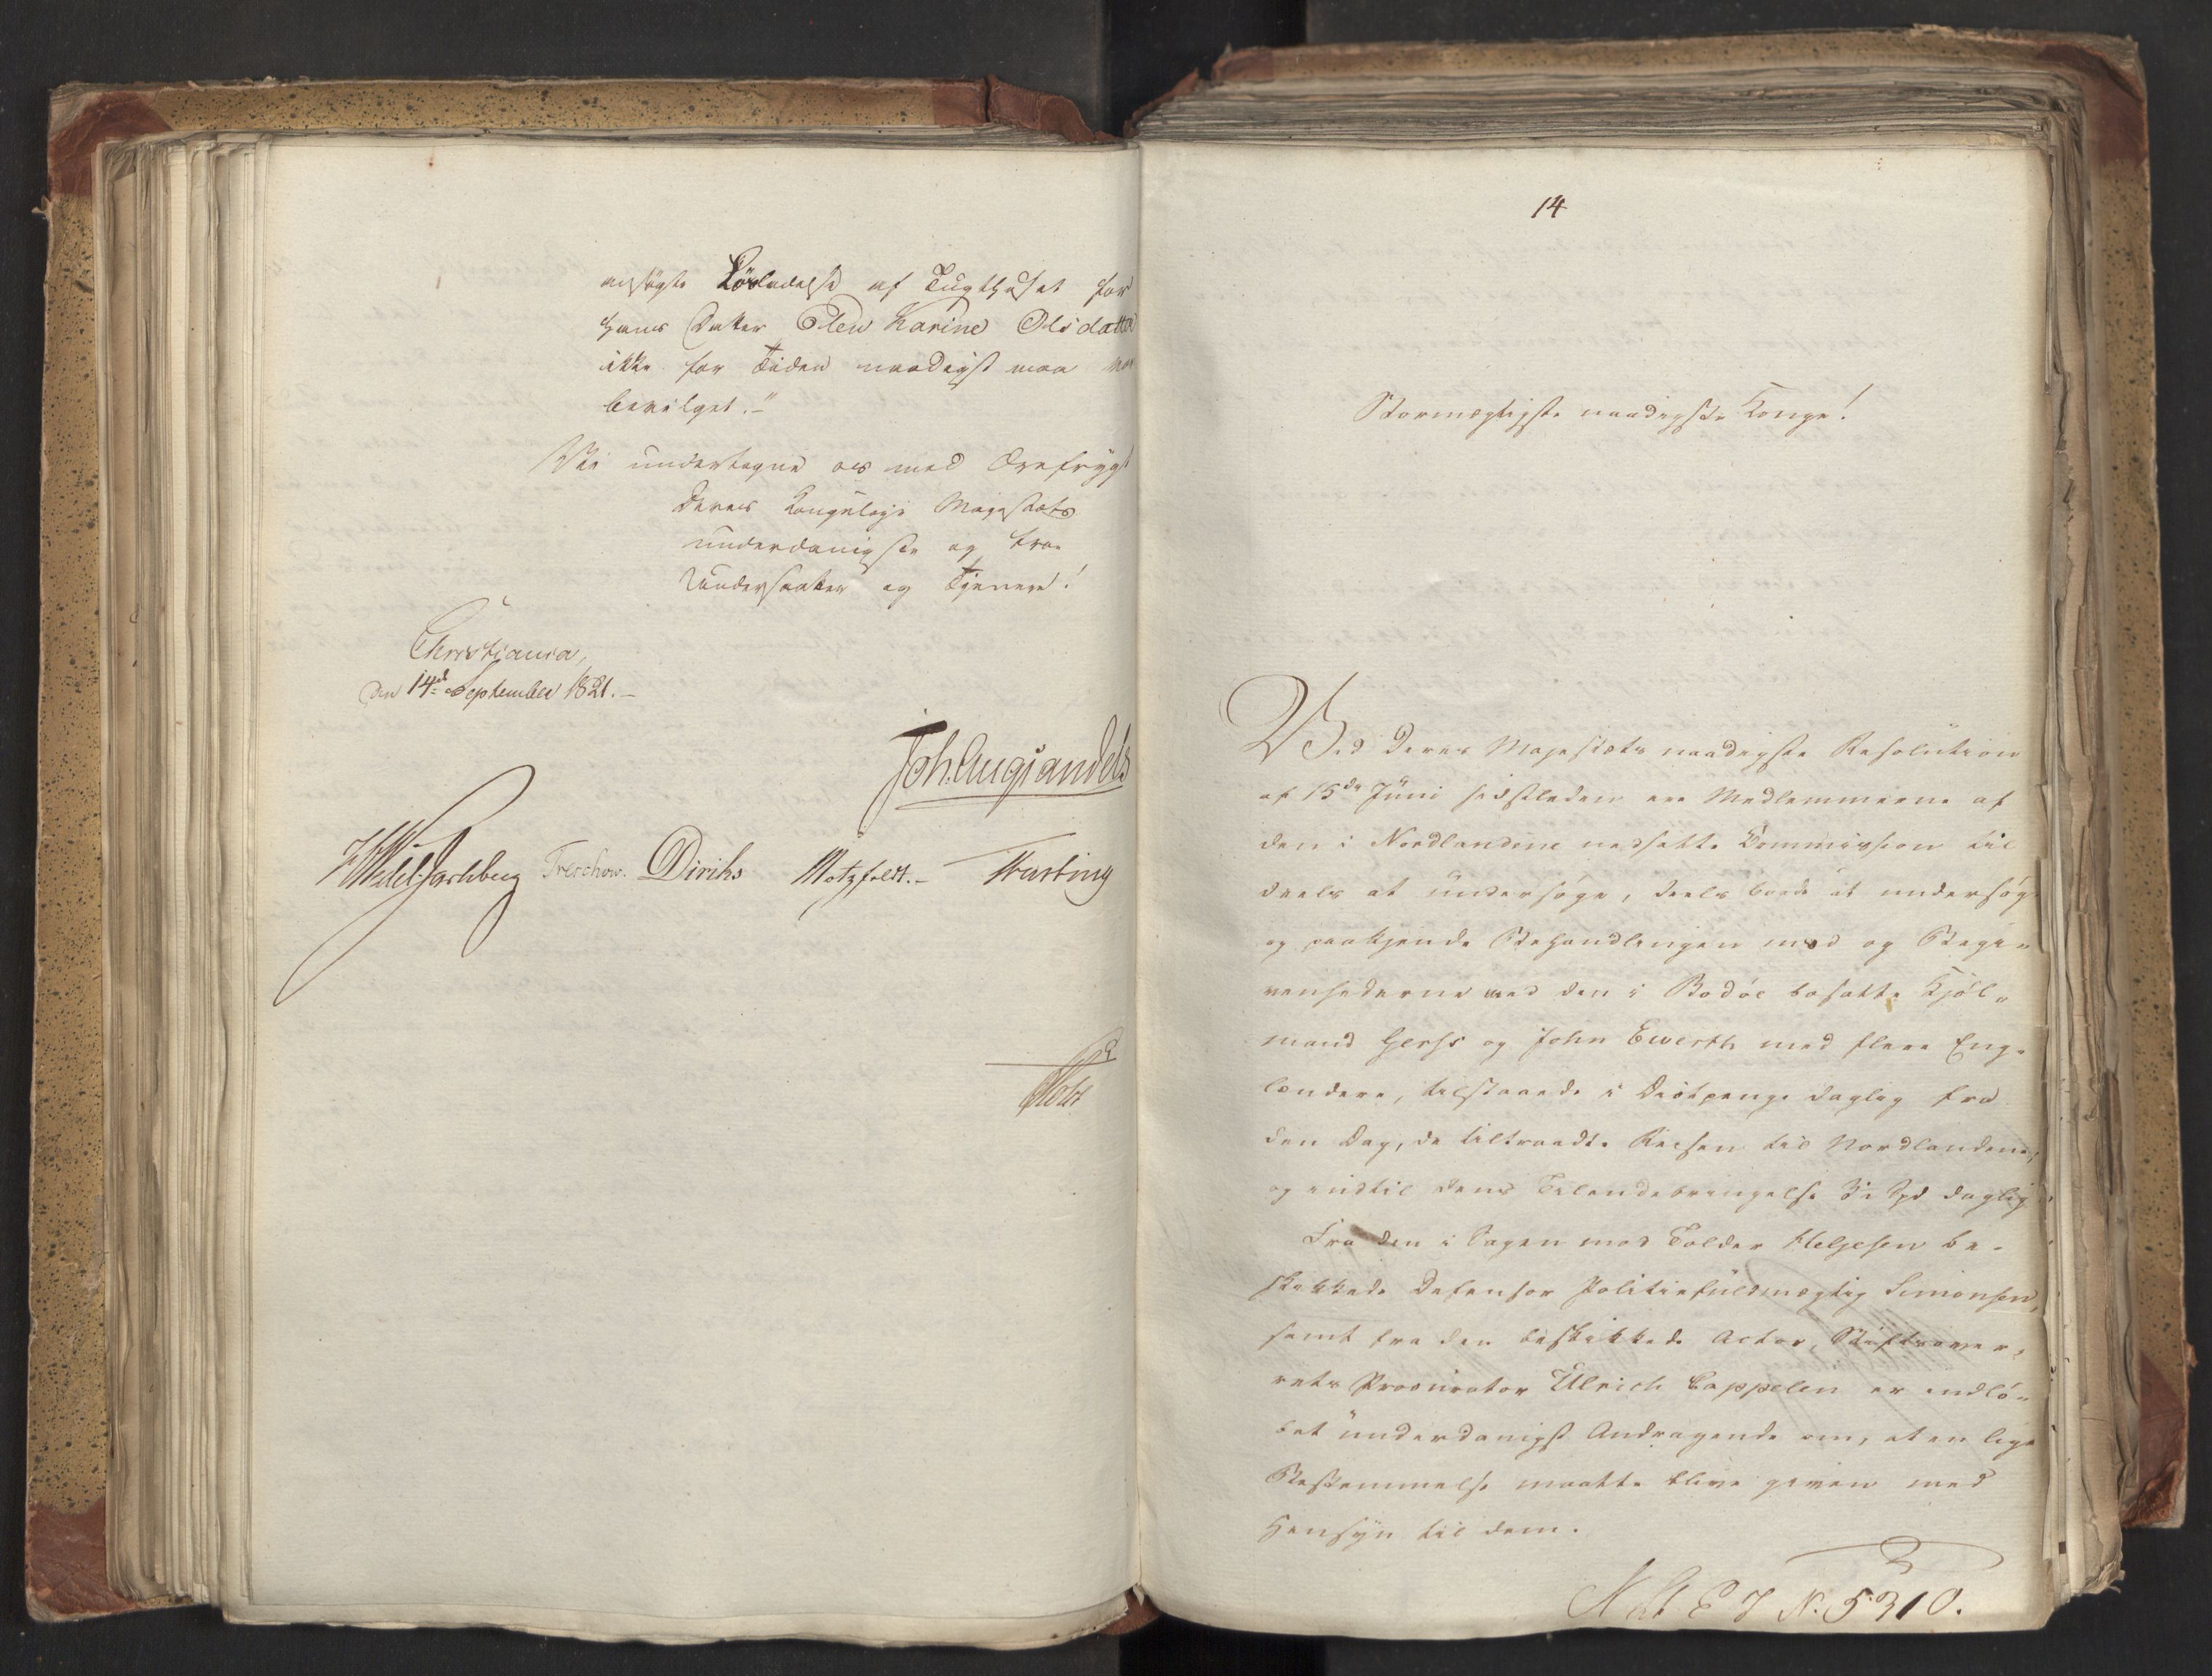 ansögte Löslatelse af Tugthuset for
hans Datter Olea Karine Olsdatter
ikke for Tiden naadigst maa vorde
bevilget."
Vi undertegne os med Ærefrygt
Deres Kongelige Majestæts
underdanigste og troe
Undersaatter og Tjenere!
Christiania,
den 14de September 1821.
Joh. Aug. Sandels
HWedelJarlsberg Treschow. Diriks Motzfeldt. Fasting
Holst
14
Stormægtigste naadigste Konge!
Ved Deres Majestæts naadigste Resolution
af 15de Juni sidstleden ere Medlemmerne af
den i Nordlandene nedsatte Commission til
deels at undersöge, deels baade at undersöge
og paakjende Behandlingen med og Begi-
venhederne ved den i Bodöe bosatte Kjöb-
mand Gerss og John Ewerth med flere Eng-
lændere, tilstaaede i Diætpenge daglig fra
den Dag, de tiltraadte Reisen til Nordlandene,
og indtil dens Tilendebringelse 3½ Spd daglig
Fra den i Sagen mod Tolder Helgesen be-
skikkede Defensor Politiefuldmægtig Simonsen,
samt fra den beskikkede Actor, Stiftsover-
rets Procurator Ulrich Cappelen er indlö-
bet underdanigst Andragende om, at en lige
Bestemmelse maatte blive given med
Hensyn til dem.
N. 5310.